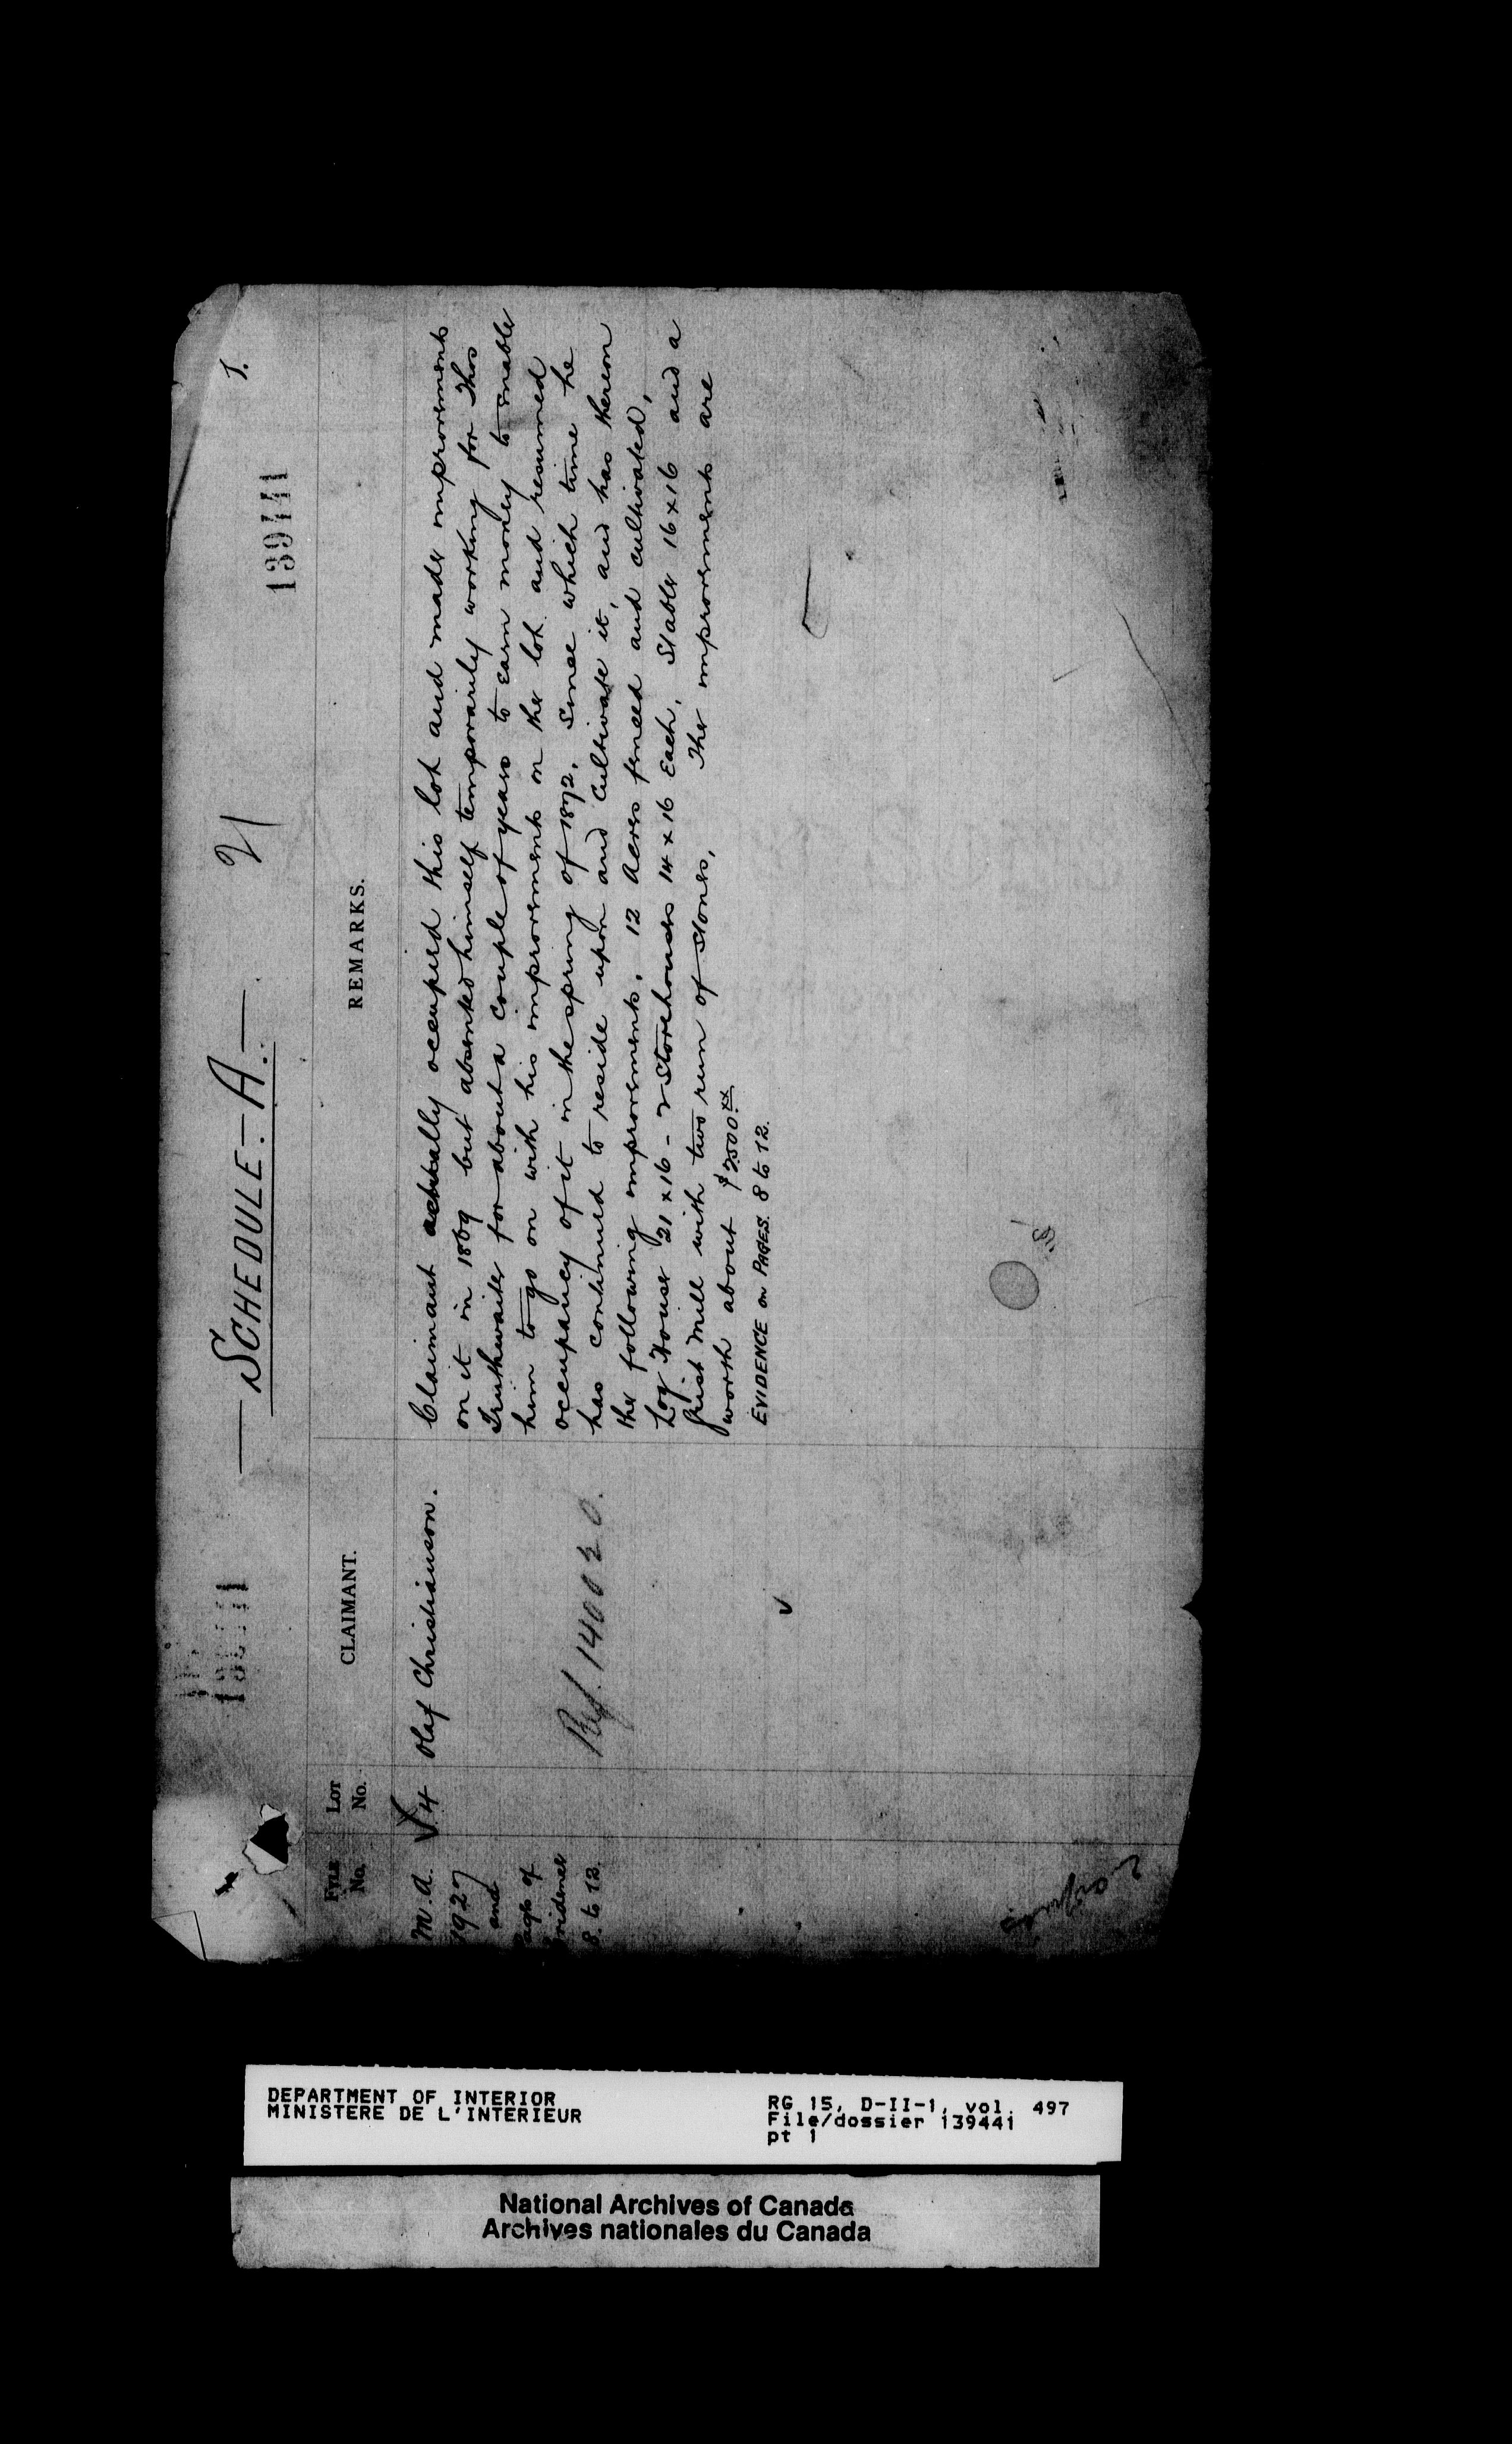 — SCHEDULE-A. —
1.
139441
FYLE No.
LOT No.
CLAIMANT.
REMARKS.
M.A. 1927 and
8. to 12.
4
Olaf Christianson.
Ref. 140020.
Claimant actually occupied this lot and made improvements
on it in 1869 but absented himself temporarily working for Thos
Truthwaite for about a couple of years to earn money to enable
him to go on with his improvements on the lot and resumed
occupancy of it in the spring of 1872, since which time he
has continued to reside upon and cultivate it, and has thereon
the following improvements. 12 Acres fenced and cultivated,
Log House 21 x 16 - 2 Storehouses 14 x 16 Each, Stable 16 x 16 and a
Grist Mill with two run of stones, The improvements are
worth about $2500 xx
EVIDENCE on PAGES. 8 to 12.
DEPARTMENT OF INTERIOR
MINISTERE DE L'INTERIEUR
RG 15, D-II-1, vol. 497
File/dossier 139441
pt 1
National Archives of Canada
Archives nationales du Canada